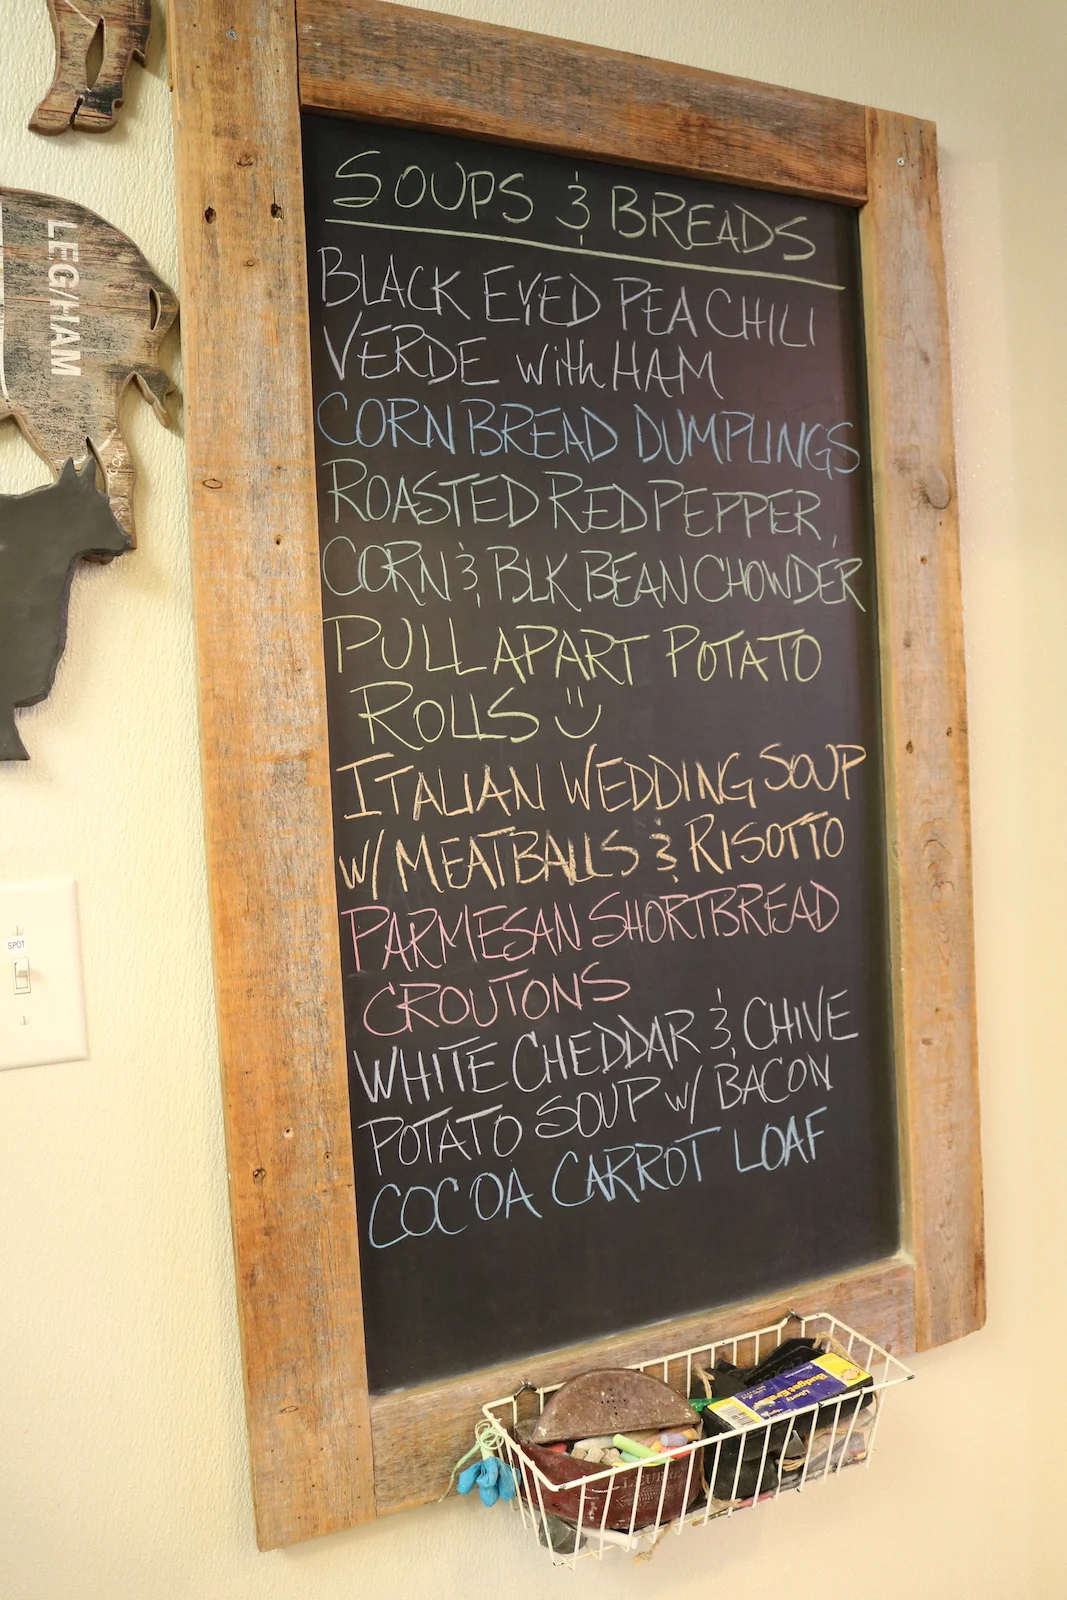 SOUPS & BREADS
BLACK EYED PEA CHILI
VERDE with HAM
CORNBREAD DUMPLINGS
ROASTED RED PEPPER,
CORN & BLK BEAN CHOWDER
PULL APART POTATO
ROLLS
ITALIAN WEDDING SOUP
W/ MEATBALLS & RISOTTO
PARMESAN SHORTBREAD
CROUTONS
WHITE CHEDDAR & CHIVE
POTATO SOUP w/ BACON
COCOA CARROT LOAF
LEG/HAM
SPOT
Budget